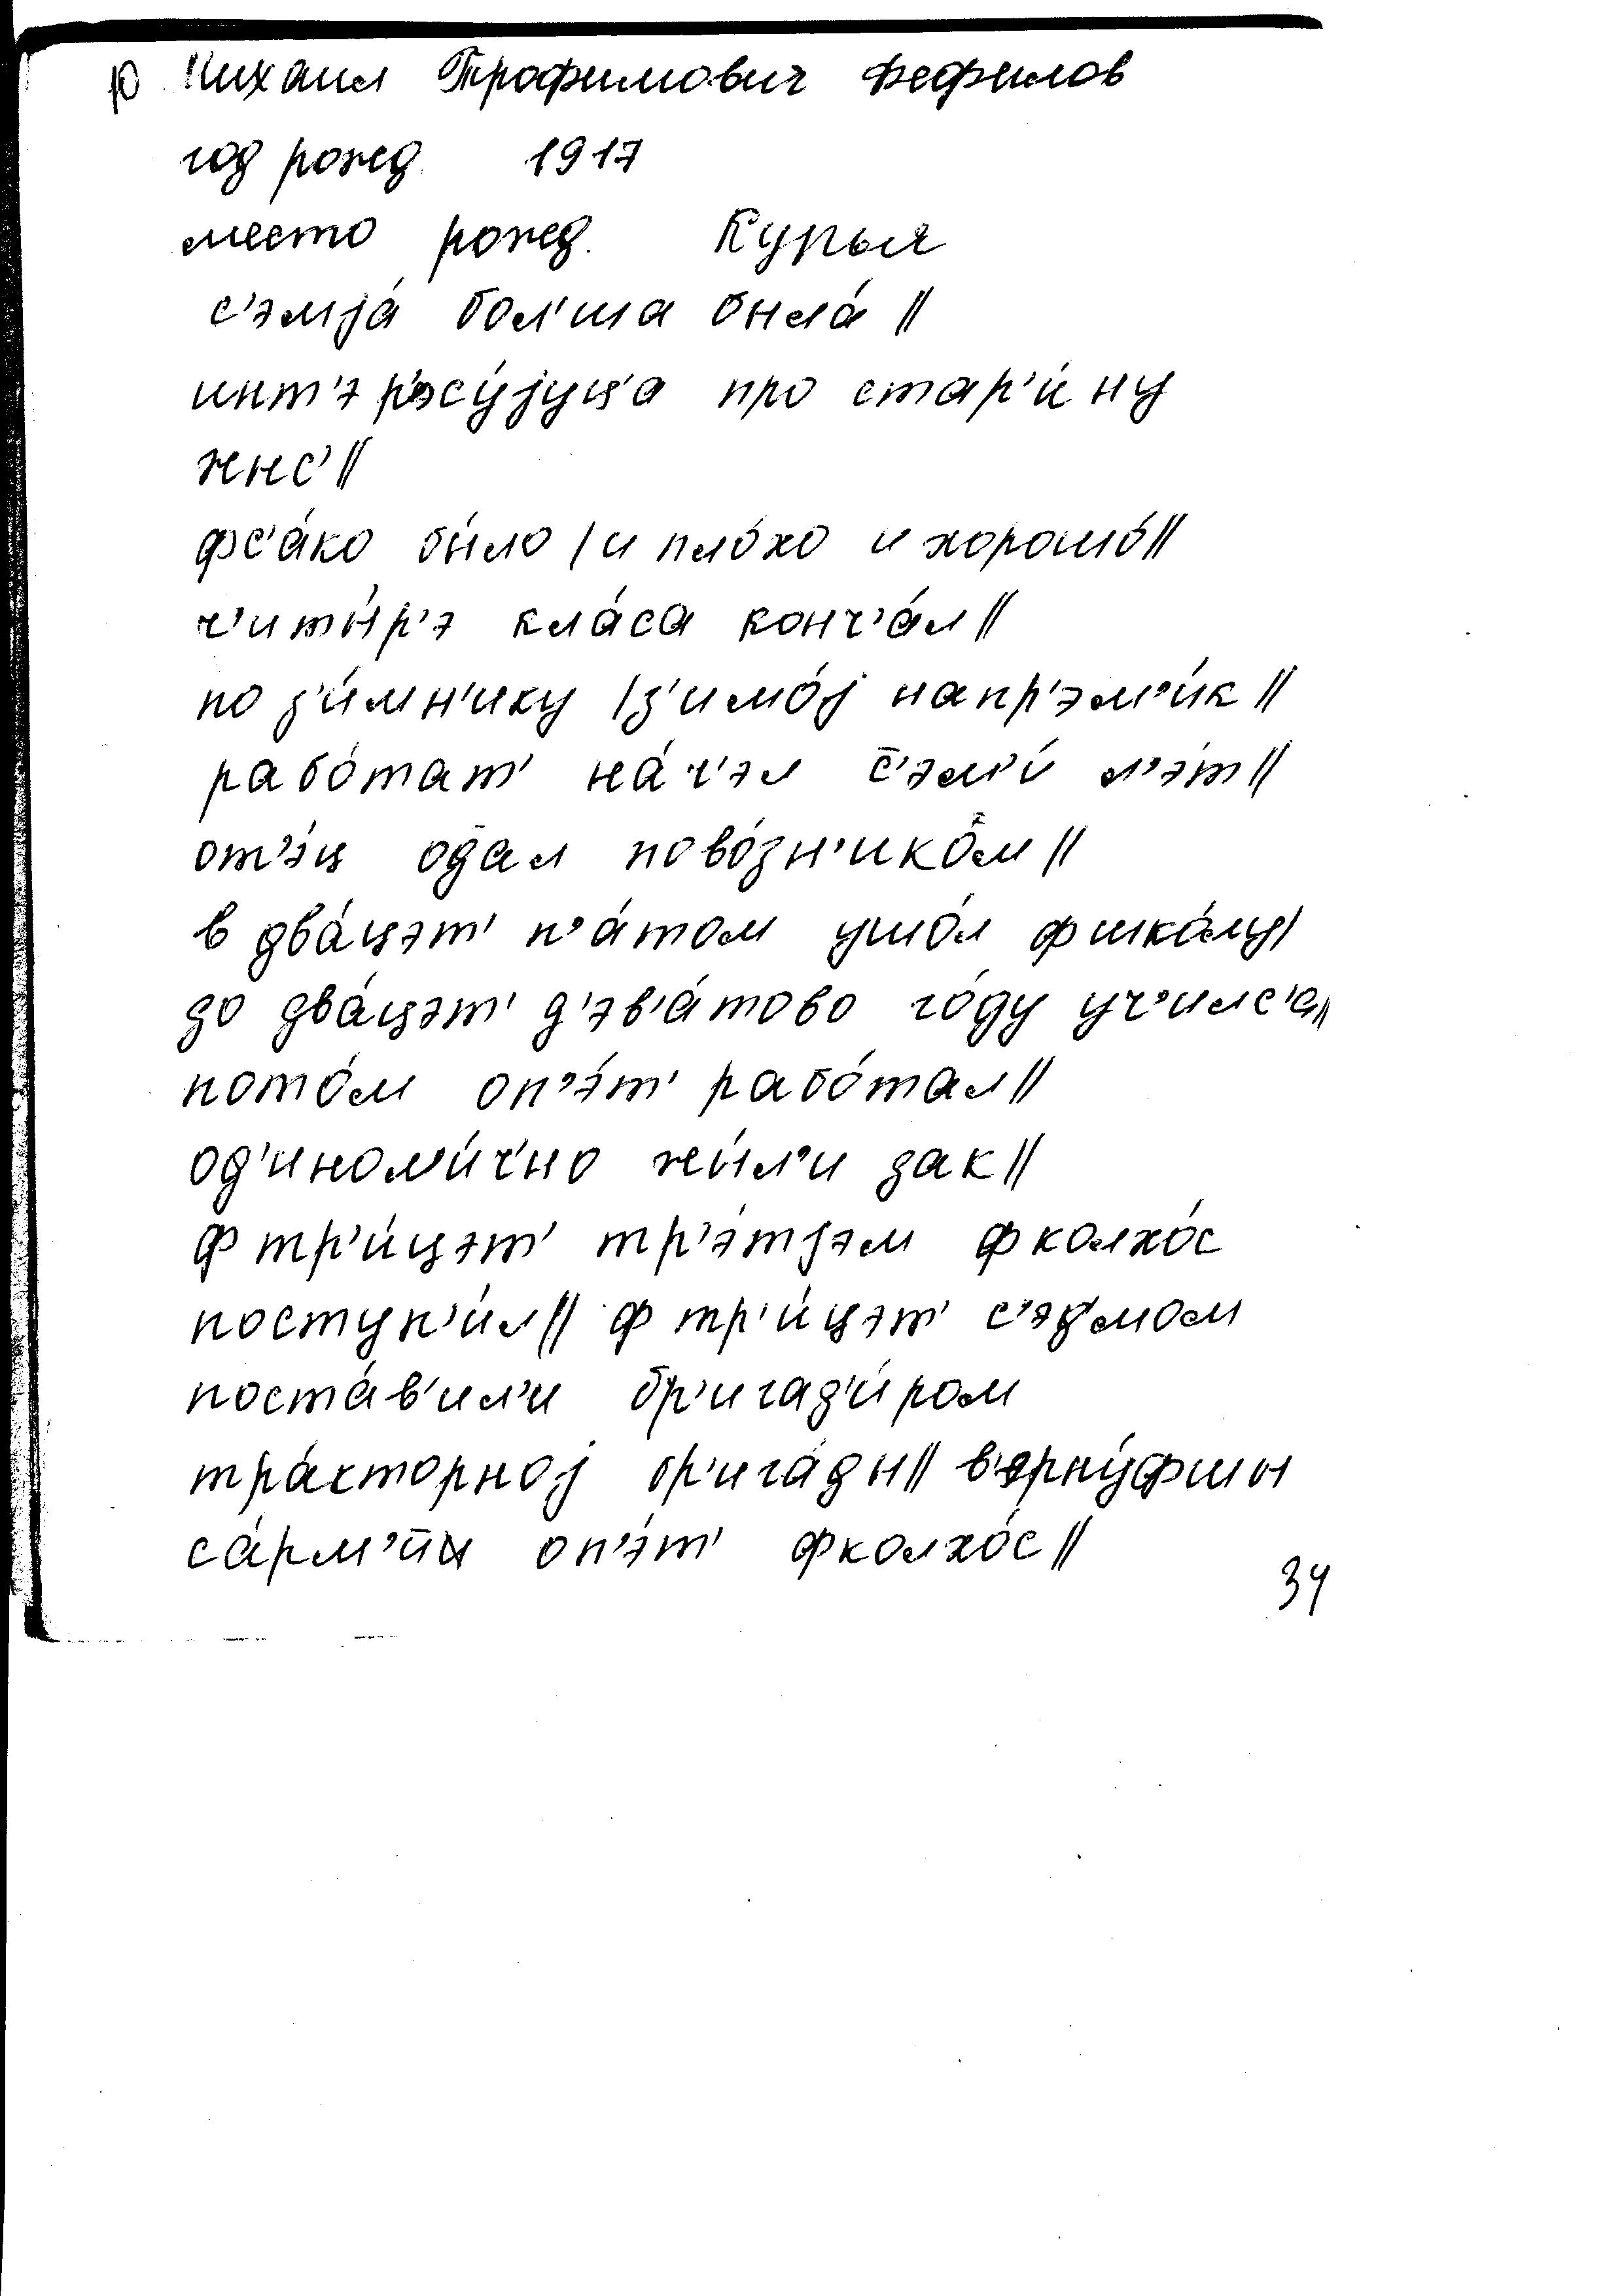 ю Михаил Трофимович Фефилов
год рожд. 1917
место рожд. Курья
с'эмjа́ бол'ша была́ ||
инт'эр'эсу́jуц'а про стар'и́ну
жыс' ||
фс'а́ко бы́ло | и пло́хо и хорошо́ ||
ч'иты́р'э кла́са конч'а́л ||
по з'и́мн'ику | з'имо́j напр'эм'и́к ||
рабо́тат' на́ч'эл с̄'эм'и́ л'э́т ||
от'э́ц о̄дал пово́зн'ико́м ||
в два́цэт' п'а́том ушо́л фшко́лу |
до два́цэт' д'эв'а́тово го́ду уч'илс'а ||
пото́м оп'э́т' рабо́тал ||
од'инол'и́ч'но жы́л'и дак ||
ф тр'и́цэт' тр'э́тjэм фколхо́с
поступ'и́л || ф тр'и́цэт' с'эд'мом
поста́в'ил'и бр'игад'и́ром
тра́кторноj бр'ига́ды || в'эрну́фшы
са́рм'ии оп'э́т' фколхо́с ||
34